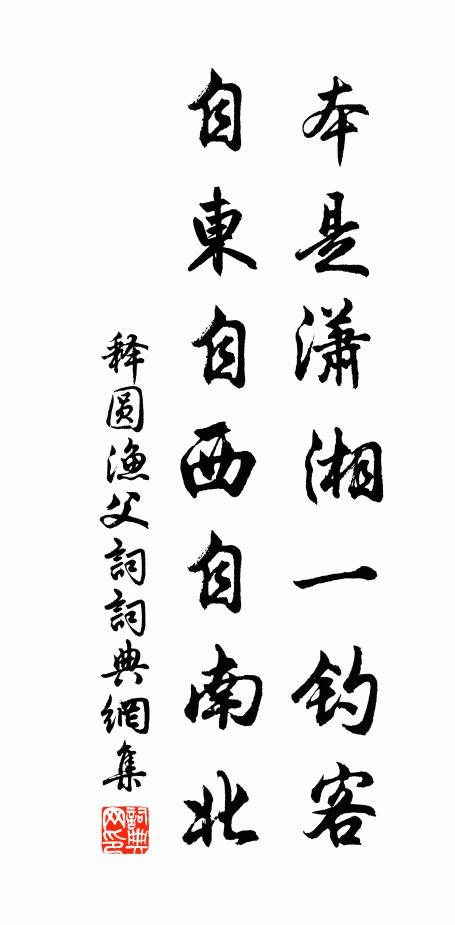 本是瀟湘一钓客
自東自西自南北
释圆漁父詞詞典網集
詞典网印